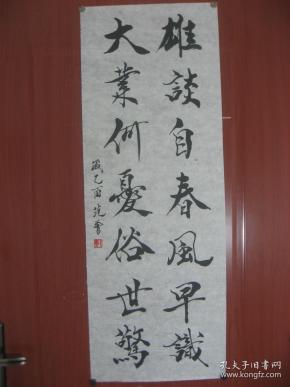 雄談自春風早識
大業何憂俗世驚
歲乙酉范曾
孔夫子旧书网
kongfz.com